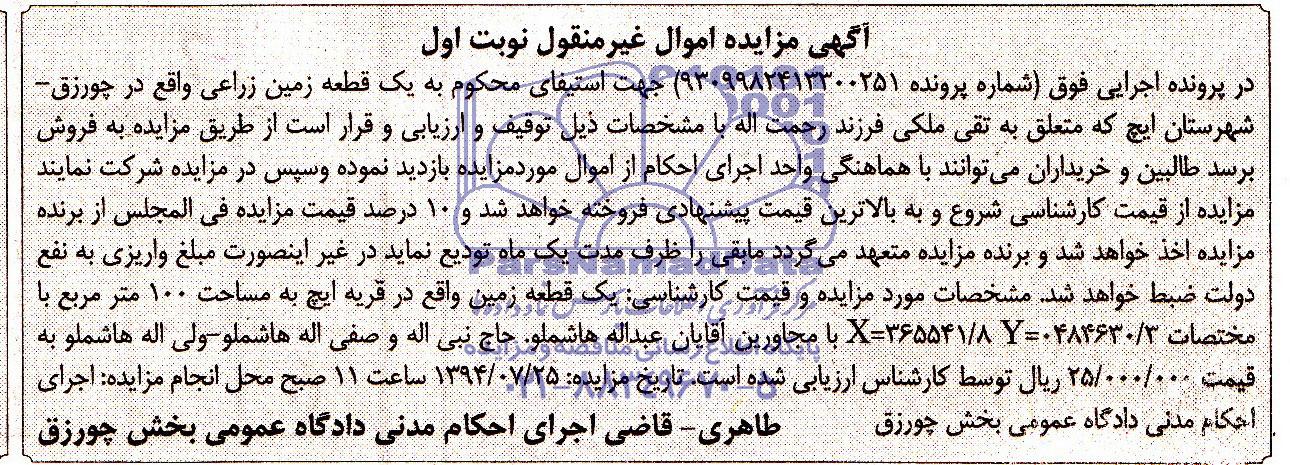 آگهی مزایده اموال غیرمنقول نوبت اول
در پرونده اجرایی فوق (شماره پرونده ۹۳۰۹۹۸۲۴۱۳۳۰۰۲۵۱) جهت استیفای محکوم به یک قطعه زمین زراعی واقع در چورزق-
شهرستان ایچ که متعلق به تقی ملکی فرزند رحمت اله با مشخصات ذیل توقیف و ارزیابی و قرار است از طریق مزایده به فروش
برسد طالبین و خریداران می‌توانند با هماهنگی واحد اجرای احکام از اموال موردمزایده بازدید نموده وسپس در مزایده شرکت نمایند
مزایده از قیمت کارشناسی شروع و به بالاترین قیمت پیشنهادی فروخته خواهد شد و ۱۰ درصد قیمت مزایده فی المجلس از برنده
مزایده اخذ خواهد شد و برنده مزایده متعهد می‌گردد مابقی را ظرف مدت یک ماه تودیع نماید در غیر اینصورت مبلغ واریزی به نفع
دولت ضبط خواهد شد. مشخصات مورد مزایده و قیمت کارشناسی: یک قطعه زمین واقع در قریه ایچ به مساحت ۱۰۰ متر مربع با
مختصات X=۳۶۵۵۴۱/۸ Y=۰۴۸۴۶۳۰/۳ با مجاورین آقایان عبداله هاشملو. حاج نبی اله و صفی اله هاشملو-ولی اله هاشملو به
قیمت ۲۵/۰۰۰/۰۰۰ ریال توسط کارشناس ارزیابی شده است. تاریخ مزایده: ۱۳۹۴/۰۷/۲۵ ساعت ۱۱ صبح محل انجام مزایده: اجرای
احکام مدنی دادگاه عمومی بخش چورزق
طاهری- قاضی اجرای احکام مدنی دادگاه عمومی بخش چورزق
ParsNamadData
پایگاه اطلاع رسانی مناقصه و مزایده
۰۲۱-۸۸۳۴۹۶۷۰-۵